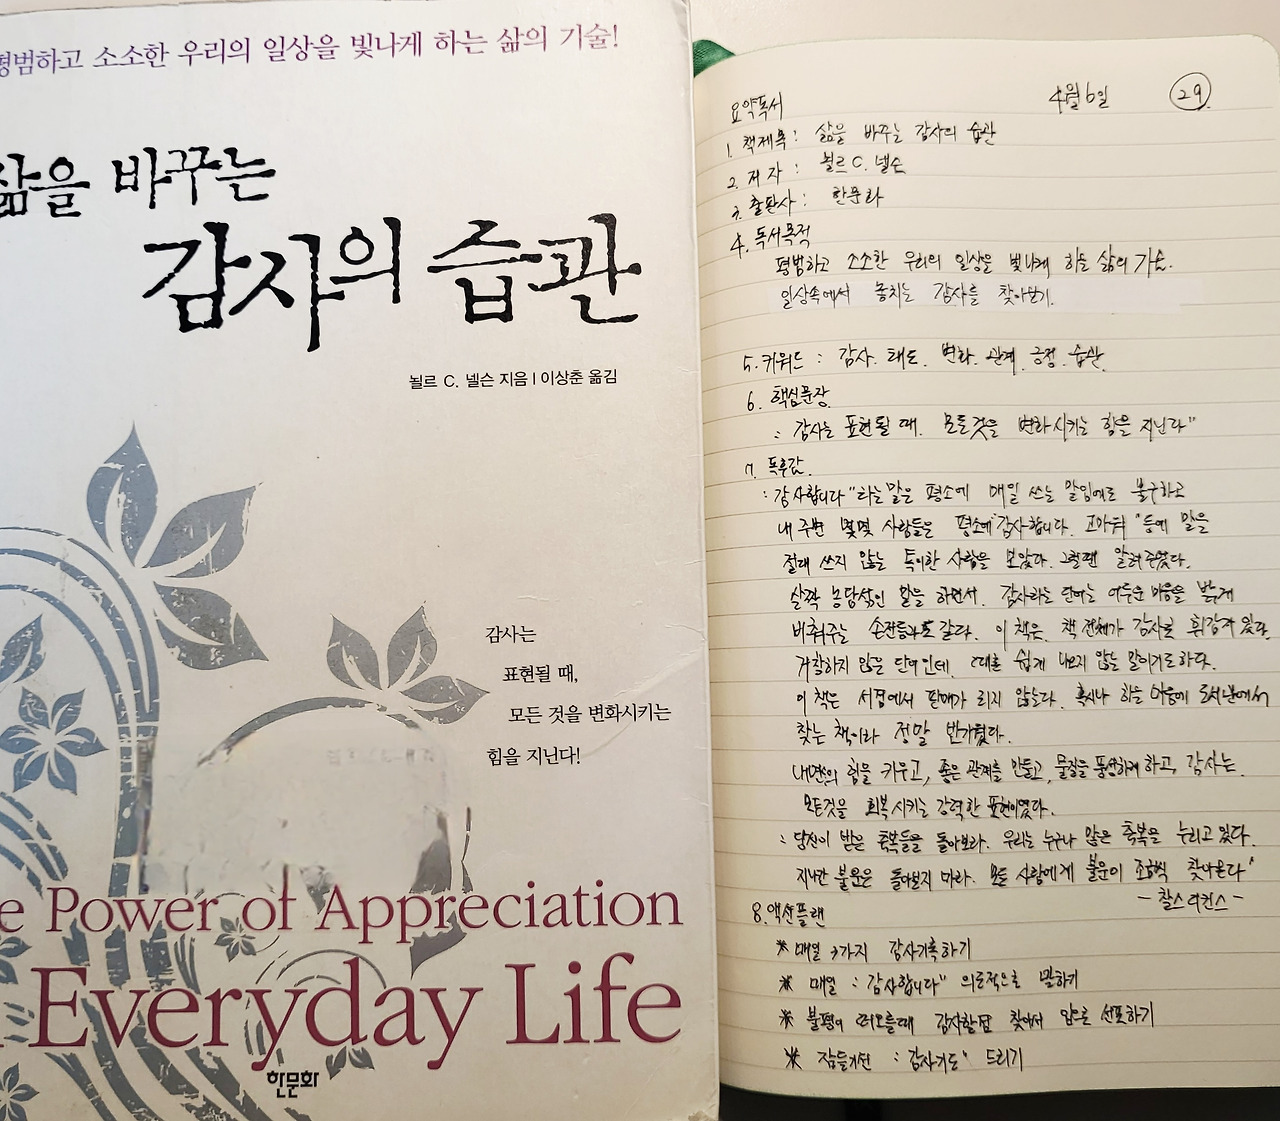 평범하고 소소한 우리의 일상을 빛나게 하는 삶의 기술!
삶을 바꾸는
감사의 습관
뇔르 C. 넬슨 지음 | 이상춘 옮김
감사는
표현될 때,
모든 것을 변화시키는
힘을 지닌다!
e Power of Appreciation
Everyday Life
한문화
4월 6일 29.
요약독서
1. 책제목 : 삶을 바꾸는 감사의 습관
2. 저자 : 뇔르 C. 넬슨
3. 출판사 : 한문화
4. 독서목적
평범하고 소소한 우리의 일상을 빛나게 하는 삶의 기술.
일상속에서 놓치는 감사를 찾아보기.
5. 키워드 : 감사. 태도. 변화. 관계. 긍정. 습관.
6. 핵심문장
: 감사는 표현될 때. 모든것을 변화시키는 힘을 지닌다"
7. 독후감.
: 감사합니다"라는 말은 평소에 매일 쓰는 말임에도 불구하고
내 주변 몇몇 사람들은 평소에"감사합니다. 고마워 "등에 말을
절대 쓰지 않는 독특한 사람을 보았다. 그럴땐 알려주었다.
살짝 농담섞인 말을 하면서. 감사라는 단어는 어두운 마음을 밝게
비춰주는 손전등과도 같다. 이 책은. 책 전체가 감사로 휘감겨 있다.
거창하지 않은 단어인데. 때론 쉽게 나오지 않는 말이기도하다.
이 책은 서점에서 판매가 되지 않는다. 혹시나 하는 마음에 도서관에서
찾는 책이라 정말 반가웠다.
내면의 힘을 키우고, 좋은 관계를 만들고, 물질을 풍성하게 하고, 감사는.
모든것을 회복시키는 강력한 표현이였다.
: 당신이 받은 축복들을 돌아보라. 우리는 누구나 많은 축복을 누리고 있다.
지나간 불운은 돌아보지 마라. 모든 사람에게 불운이 조금씩 찾아온다"
- 찰스 디킨스 -
8. 액션플랜
* 매일 3가지 감사기록하기
* 매일 : 감사합니다" 의도적으로 말하기
* 불평이 떠오를때 감사할점 찾아서 입으로 선포하기
* 잠들기전 : 감사기도" 드리기